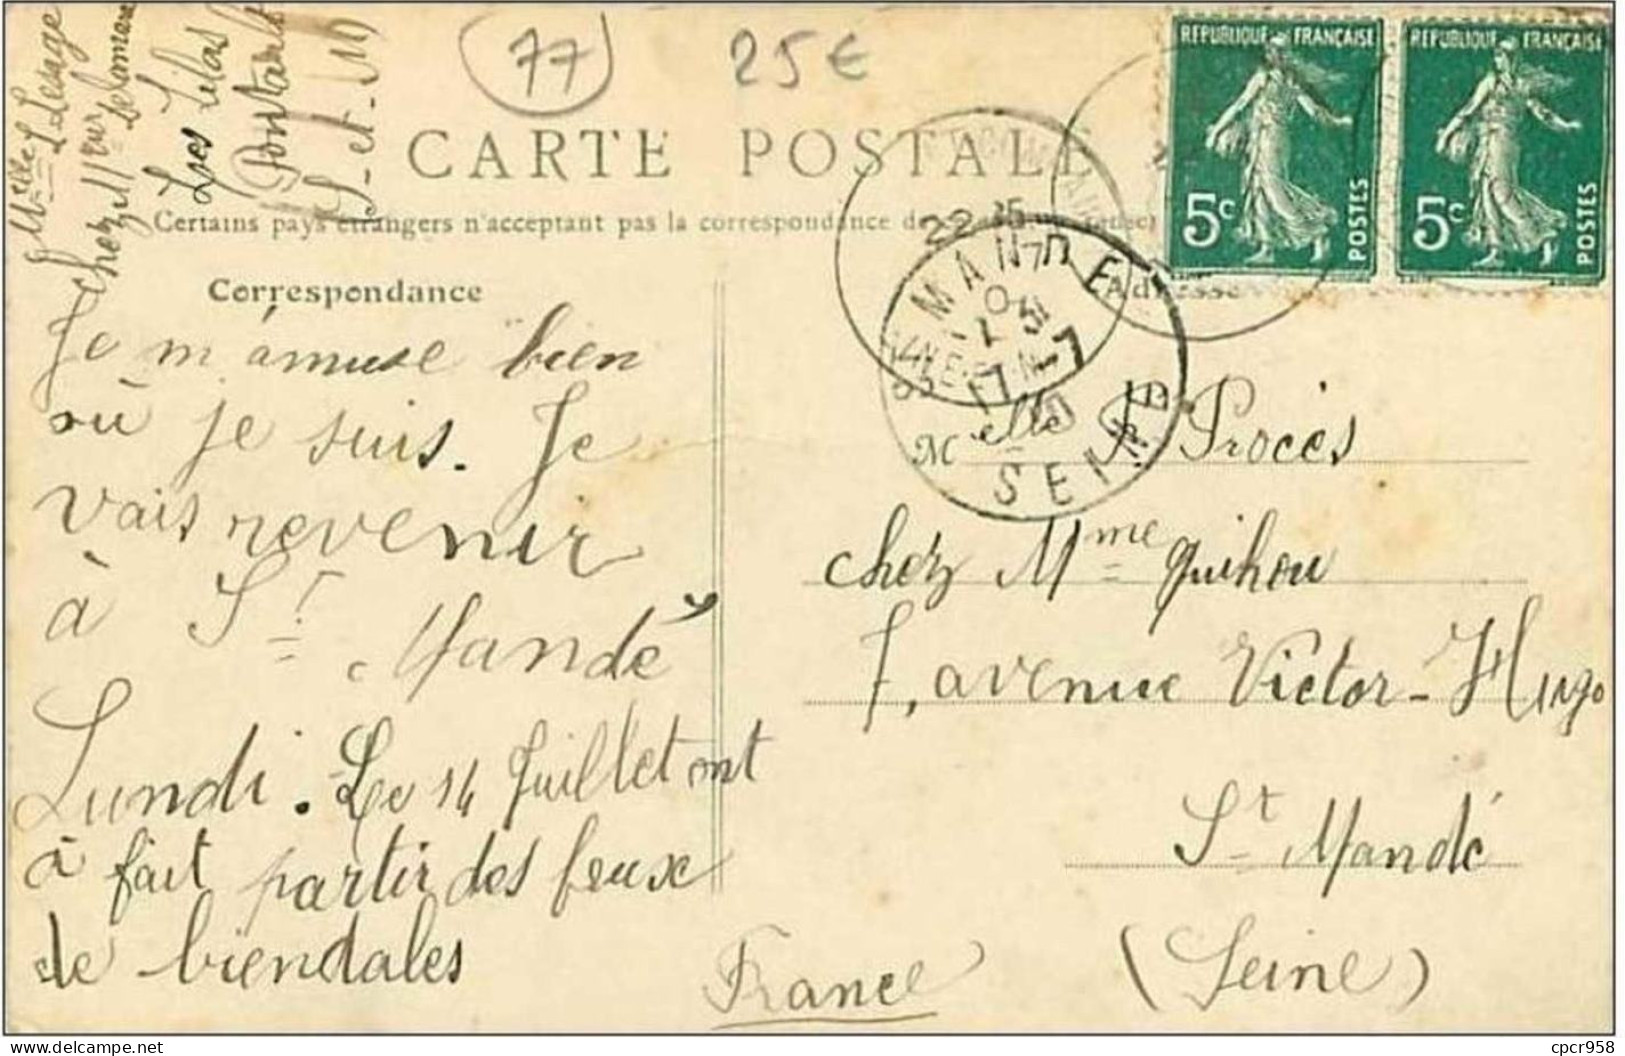 Melle L. Lesage
chez Mr
Les Lilas
Pontault
S-et-M
77
25€
CARTE POSTALE
Certains pays étrangers n'acceptent pas la correspondance de
Correspondance
Adresse
REPUBLIQUE FRANÇAISE
5c
POSTES
REPUBLIQUE FRANÇAISE
5c
POSTES
SEINE
Je m'amuse bien
où je suis. Je
vais revenir
à St
Mandé
Lundi. Le 14 Juillet ont
à fait partir des feux
de biendales
Melle Procès
chez Mme Guihou
7, avenue Victor-Hugo
St Mandé
(Seine)
France
cpcr958